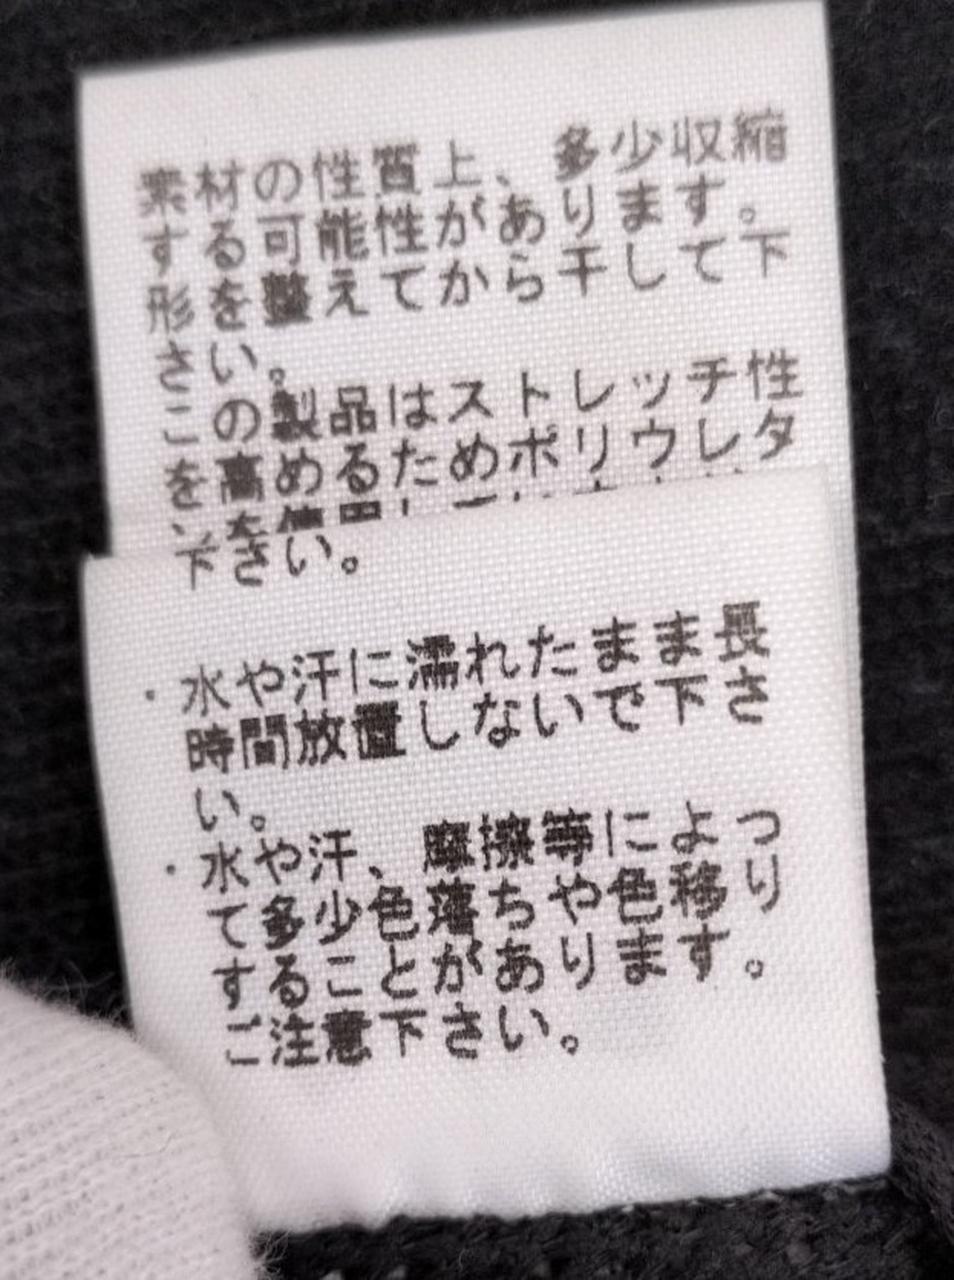 素材の性質上、多少収縮
する可能性があります。
形を整えてから干して下
さい。
この製品はストレッチ性
を高めるためポリウレタ
ンを使用して
下さい。
・水や汗に濡れたまま長
時間放置しないで下さ
い。
・水や汗、摩擦等によっ
て多少色落ちや色移り
することがあります。
ご注意下さい。